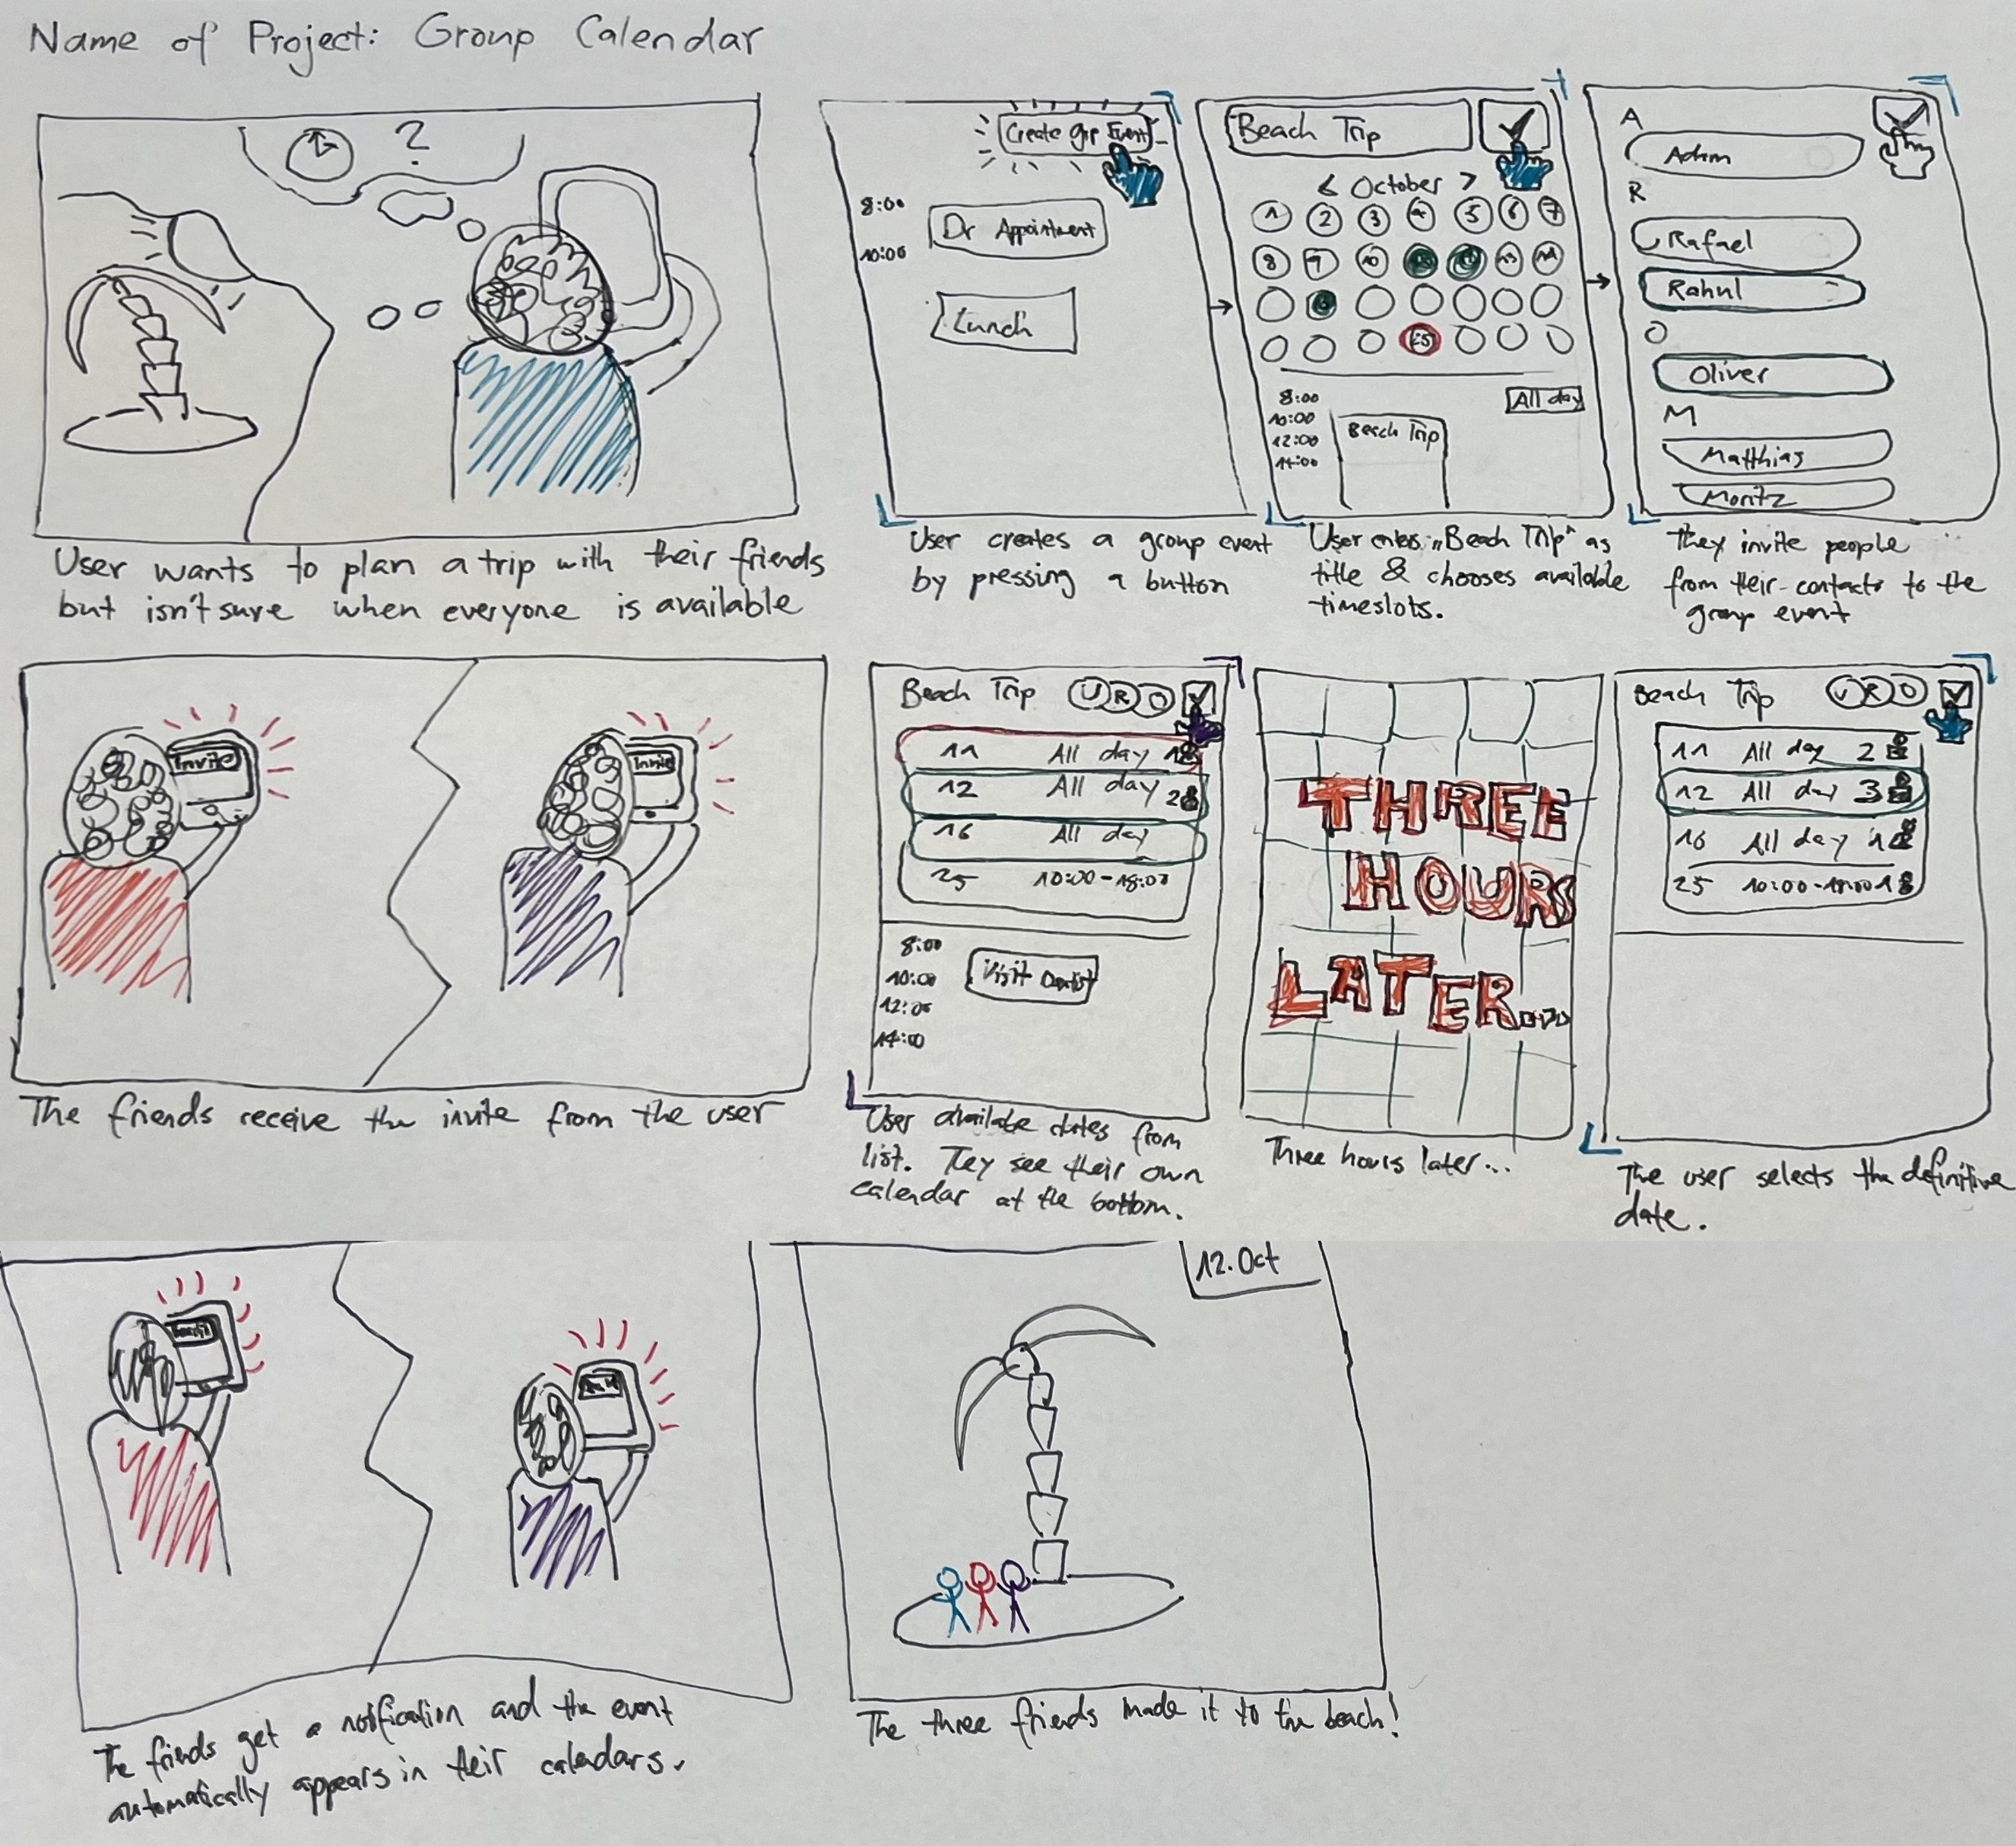 Name of Project: Group Calendar
?
User wants to plan a trip with their friends
but isn't sure when everyone is available
Create Grp Event
8:00
Dr Appointment
10:00
Lunch
User creates a group event
by pressing a button
Beach Trip
< October >
1 2 3 4 5 6 7
8 9 10 11 12 13 14
25
8:00
All day
10:00
12:00
Beach Trip
14:00
User enters „Beach Trip" as
title & chooses available
timeslots.
A
Adam
R
Rafael
Rahul
O
Oliver
M
Matthias
Moritz
They invite people
from their contacts to the
group event
Invite
Invite
The friends receive the invite from the user
Beach Trip U R O
11 All day 1
12 All day 2
16 All day
25 10:00-18:00
8:00
10:00
Visit Dentist
12:00
14:00
User available dates from
list. They see their own
calendar at the bottom.
THREE
HOURS
LATER...
Three hours later...
Beach Trip U R O
11 All day 2
12 All day 3
16 All day 1
25 10:00-18:00 1
The user selects the definitive
date.
The friends get a notification and the event
automatically appears in their calendars.
12. Oct
The three friends made it to the beach!